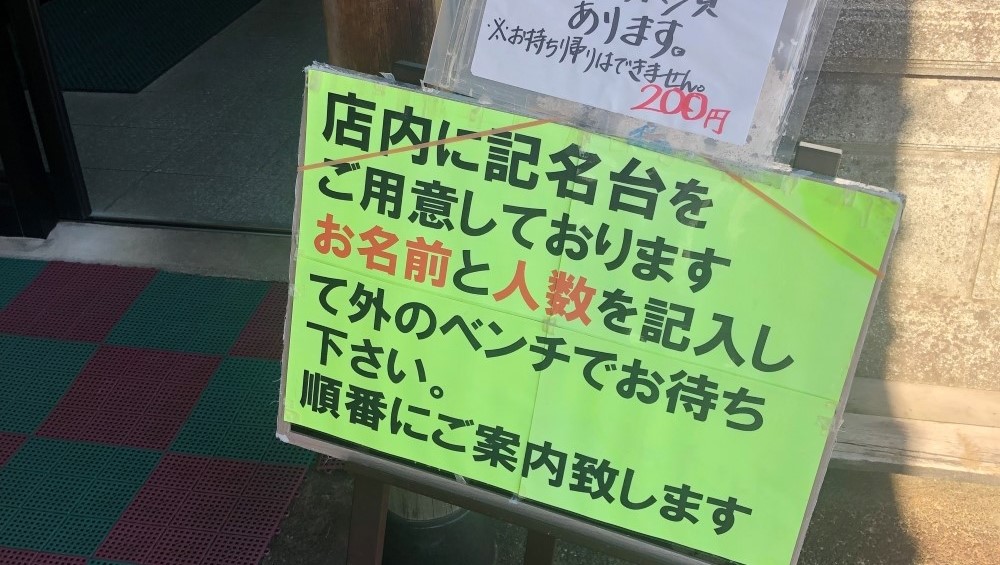 あります。
※お持ち帰りはできません。
200円
店内に記名台を
ご用意しております
お名前と人数を記入し
て外のベンチでお待ち
下さい。
順番にご案内致します